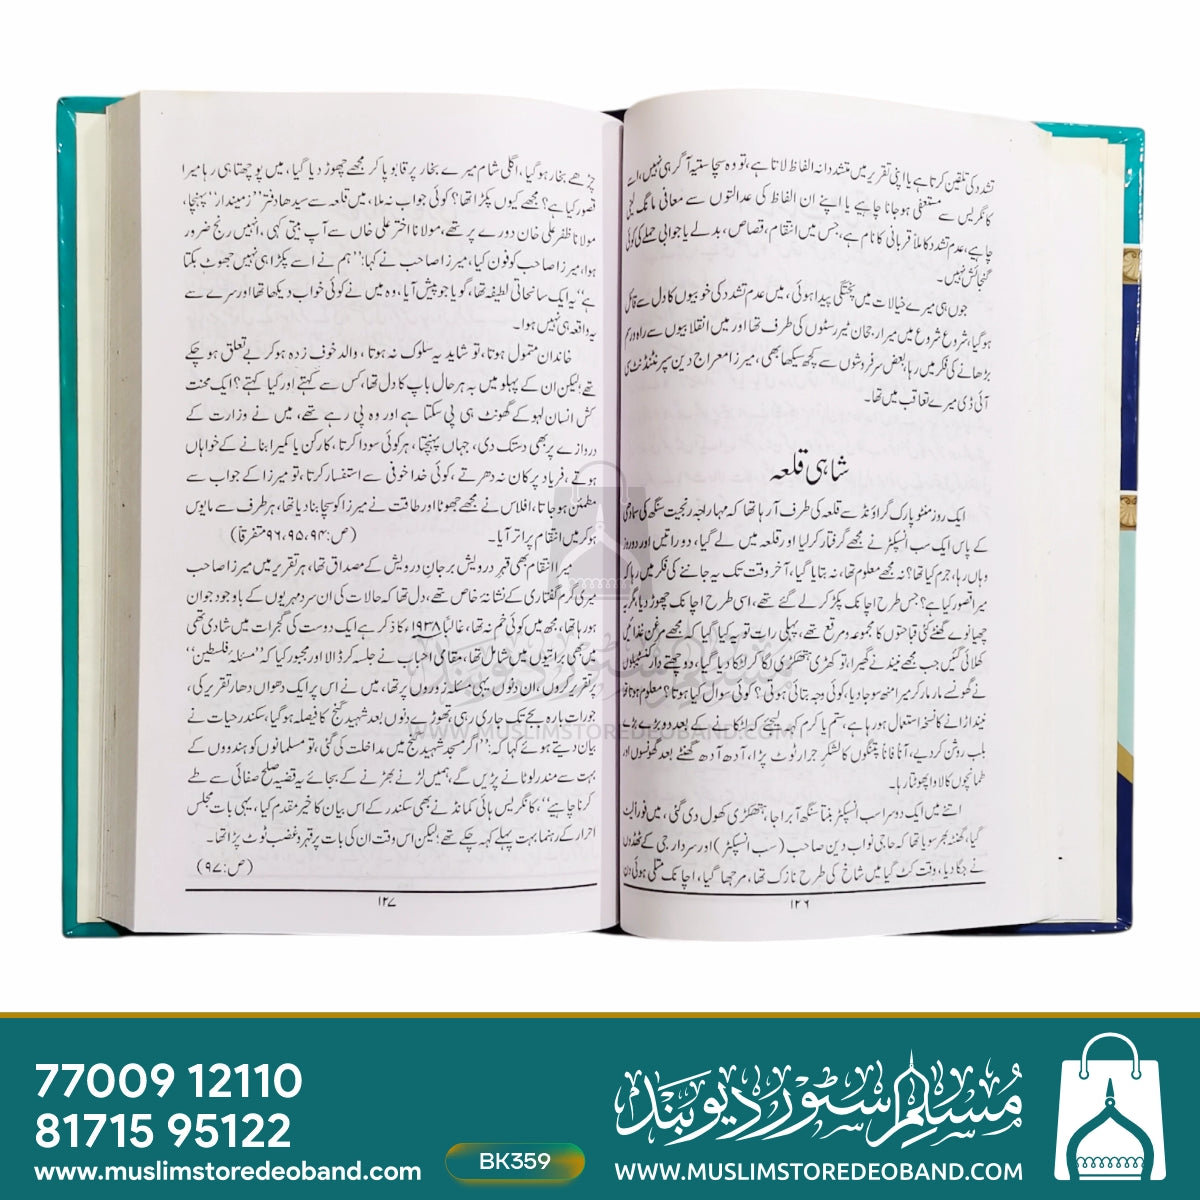 تشدد کی تلقین کرتا ہے یا اپنی تقریر میں متشددانہ الفاظ لاتا ہے، تو وہ سچا ستیہ آگرہی نہیں، اسے
کانگریس سے مستعفی ہو جانا چاہیے یا اپنے ان الفاظ کی عدالتوں سے معافی مانگ لینی
چاہیے، عدم تشدد کاملاً قربانی کا نام ہے، جس میں انتقام، قصاص، بدلے یا جوابی حملے کی کوئی
گنجائش نہیں۔
جوں ہی میرے خیالات میں پختگی پیدا ہوئی، میں عدم تشدد کی خوبیوں کا دل سے قائل
ہو گیا، شروع شروع میں میرا رجحان ٹیررسٹوں کی طرف تھا اور میں انقلابیوں سے راہ و رسم
بڑھانے کی فکر میں رہا، بعض سرفروشوں سے کچھ سیکھا بھی، میرزا معراج دین سپرنٹنڈنٹ سی
آئی ڈی میرے تعاقب میں تھا۔
شاہی قلعہ
ایک روز منٹو پارک گراؤنڈ سے قلعہ کی طرف آ رہا تھا کہ مہاراجہ رنجیت سنگھ کی سمادھی
کے پاس ایک سب انسپکٹر نے مجھے گرفتار کر لیا اور قلعہ میں لے گیا، دو راتیں اور دو روز
وہاں رہا، جرم کیا تھا؟ نہ مجھے معلوم تھا، نہ بتایا گیا، آخر وقت تک یہ جاننے کی فکر میں رہا کہ
میرا قصور کیا ہے؟ جس طرح اچانک پکڑ کر لے گئے تھے، اسی طرح اچانک چھوڑ دیا، مگر یہ
چھیانوے گھنٹے کئی قباحتوں کا مجموعہ و مرقع تھے، پہلی رات تو یہ کیا گیا کہ مجھے مرغن غذائیں
کھلائی گئیں جب مجھے نیند نے گھیرا، تو کھڑی ہتھکڑی لگا کر لٹکا دیا گیا، دو چھٹے دار کنسٹیبلوں
نے گھونسے مار مار کر میرا منہ سوجا دیا، کوئی وجہ بتائی ہوئی؟ کوئی سوال کیا ہوتا؟ معلوم ہوتا تو
نیند اڑانے کا نسخہ استعمال ہو رہا ہے، ستم یا کرم کہہ لیجئے کہ لٹکانے کے بعد دو بڑے بڑے
بلب روشن کر دیے، آناً فاناً پتنگوں کا لشکر جرار ٹوٹ پڑا، آدھ آدھ گھنٹے بعد گھونسوں اور
طمانچوں کا لاوا پھوٹتا رہا۔
اتنے میں ایک دوسرا سب انسپکٹر بنتا سنگھ آ براجا، ہتھکڑی کھول دی گئی، میں فوراً لیٹ
گیا، گھنٹہ بھر سویا تھا کہ حاجی نواب دین صاحب (سب انسپکٹر) اور سردار جی کے ٹھڈوں
نے جگا دیا، وقت کٹ گیا میں شاخ کی طرح نازک تھا، مرجھا گیا، اچانک متلی ہوئی دن
۱۲۶
چڑھے بخار ہو گیا، اگلی شام میرے بخار پر قابو پا کر مجھے چھوڑ دیا گیا، میں پوچھتا ہی رہا میرا
قصور کیا ہے؟ مجھے کیوں پکڑا تھا؟ کوئی جواب نہ ملا، میں قلعہ سے سیدھا دفتر "زمیندار" پہنچا،
مولانا ظفر علی خان دورے پر تھے، مولانا اختر علی خاں سے آپ بیتی کہی، انہیں رنج ضرور
ہوا، میرزا صاحب کو فون کیا، میرزا صاحب نے کہا: "ہم نے اسے پکڑا ہی نہیں جھوٹ بکتا
ہے" یہ ایک سانحاتی لطیفہ تھا، گویا جو پیش آیا، وہ میں نے کوئی خواب دیکھا تھا اور سرے سے
یہ واقعہ ہی نہیں ہوا۔
خاندان متمول ہوتا، تو شاید یہ سلوک نہ ہوتا، والد خوف زدہ ہو کر بے تعلق ہو چکے
تھے؛ لیکن ان کے پہلو میں بہ ہر حال باپ کا دل تھا، کس سے کہتے اور کیا کہتے؟ ایک محنت
کش انسان لہو کے گھونٹ ہی پی سکتا ہے اور وہ پی رہے تھے، میں نے وزارت کے
دروازے پر بھی دستک دی، جہاں پہنچتا، ہر کوئی سودا کرتا، کارکن یا کمیرا بنانے کے خواہاں
ہوتے، فریاد پر کان نہ دھرتے، کوئی خدا خوفی سے استفسار کرتا، تو میرزا کے جواب سے
مطمئن ہو جاتا، افلاس نے مجھے جھوٹا اور طاقت نے میرزا کو سچا بنا دیا تھا، ہر طرف سے مایوس
ہو کر میں انتقام پر اتر آیا۔ (ص:۹۴، ۹۵، ۹۶ متفرقا)
میرا انتقام بھی قہرِ درویش بر جانِ درویش کے مصداق تھا، ہر تقریر میں میرزا صاحب
میری گرم گفتاری کے نشانۂ خاص تھے، دل تھا کہ حالات کی ان سرد مہریوں کے باوجود جوان
ہو رہا تھا، مجھ میں کوئی خم نہ تھا، غالباً ۱۹۳۸ء کا ذکر ہے ایک دوست کی گجرات میں شادی تھی
میں بھی براتیوں میں شامل تھا، مقامی احباب نے جلسہ کر ڈالا اور مجبور کیا کہ "مسئلہ فلسطین"
پر تقریر کروں، ان دنوں یہی مسئلہ زوروں پر تھا، میں نے اس پر ایک دھواں دھار تقریر کی،
جو رات بارہ بجے تک جاری رہی، تھوڑے دنوں بعد شہید گنج کا فیصلہ ہو گیا، سکندر حیات نے
بیان دیتے ہوئے کہا کہ: "اگر مسجد شہید گنج میں مداخلت کی گئی، تو مسلمانوں کو ہندووں کے
بہت سے مندر لوٹانے پڑیں گے، ہمیں لڑنے بھڑنے کے بجائے یہ قضیہ صلح صفائی سے طے
کرنا چاہیے"، کانگریس ہائی کمانڈ نے بھی سکندر کے اس بیان کا خیر مقدم کیا، یہی بات مجلس
احرار کے رہنما بہت پہلے کہہ چکے تھے؛ لیکن اس وقت ان کی بات پر قہر و غضب ٹوٹ پڑا تھا۔
(ص:۹۷)
۱۲۷
مسلم سٹور دیوبند
WWW.MUSLIMSTOREDEOBAND.COM
77009 12110
81715 95122
www.muslimstoredeoband.com
BK359
مسلم سٹور دیوبند
WWW.MUSLIMSTOREDEOBAND.COM